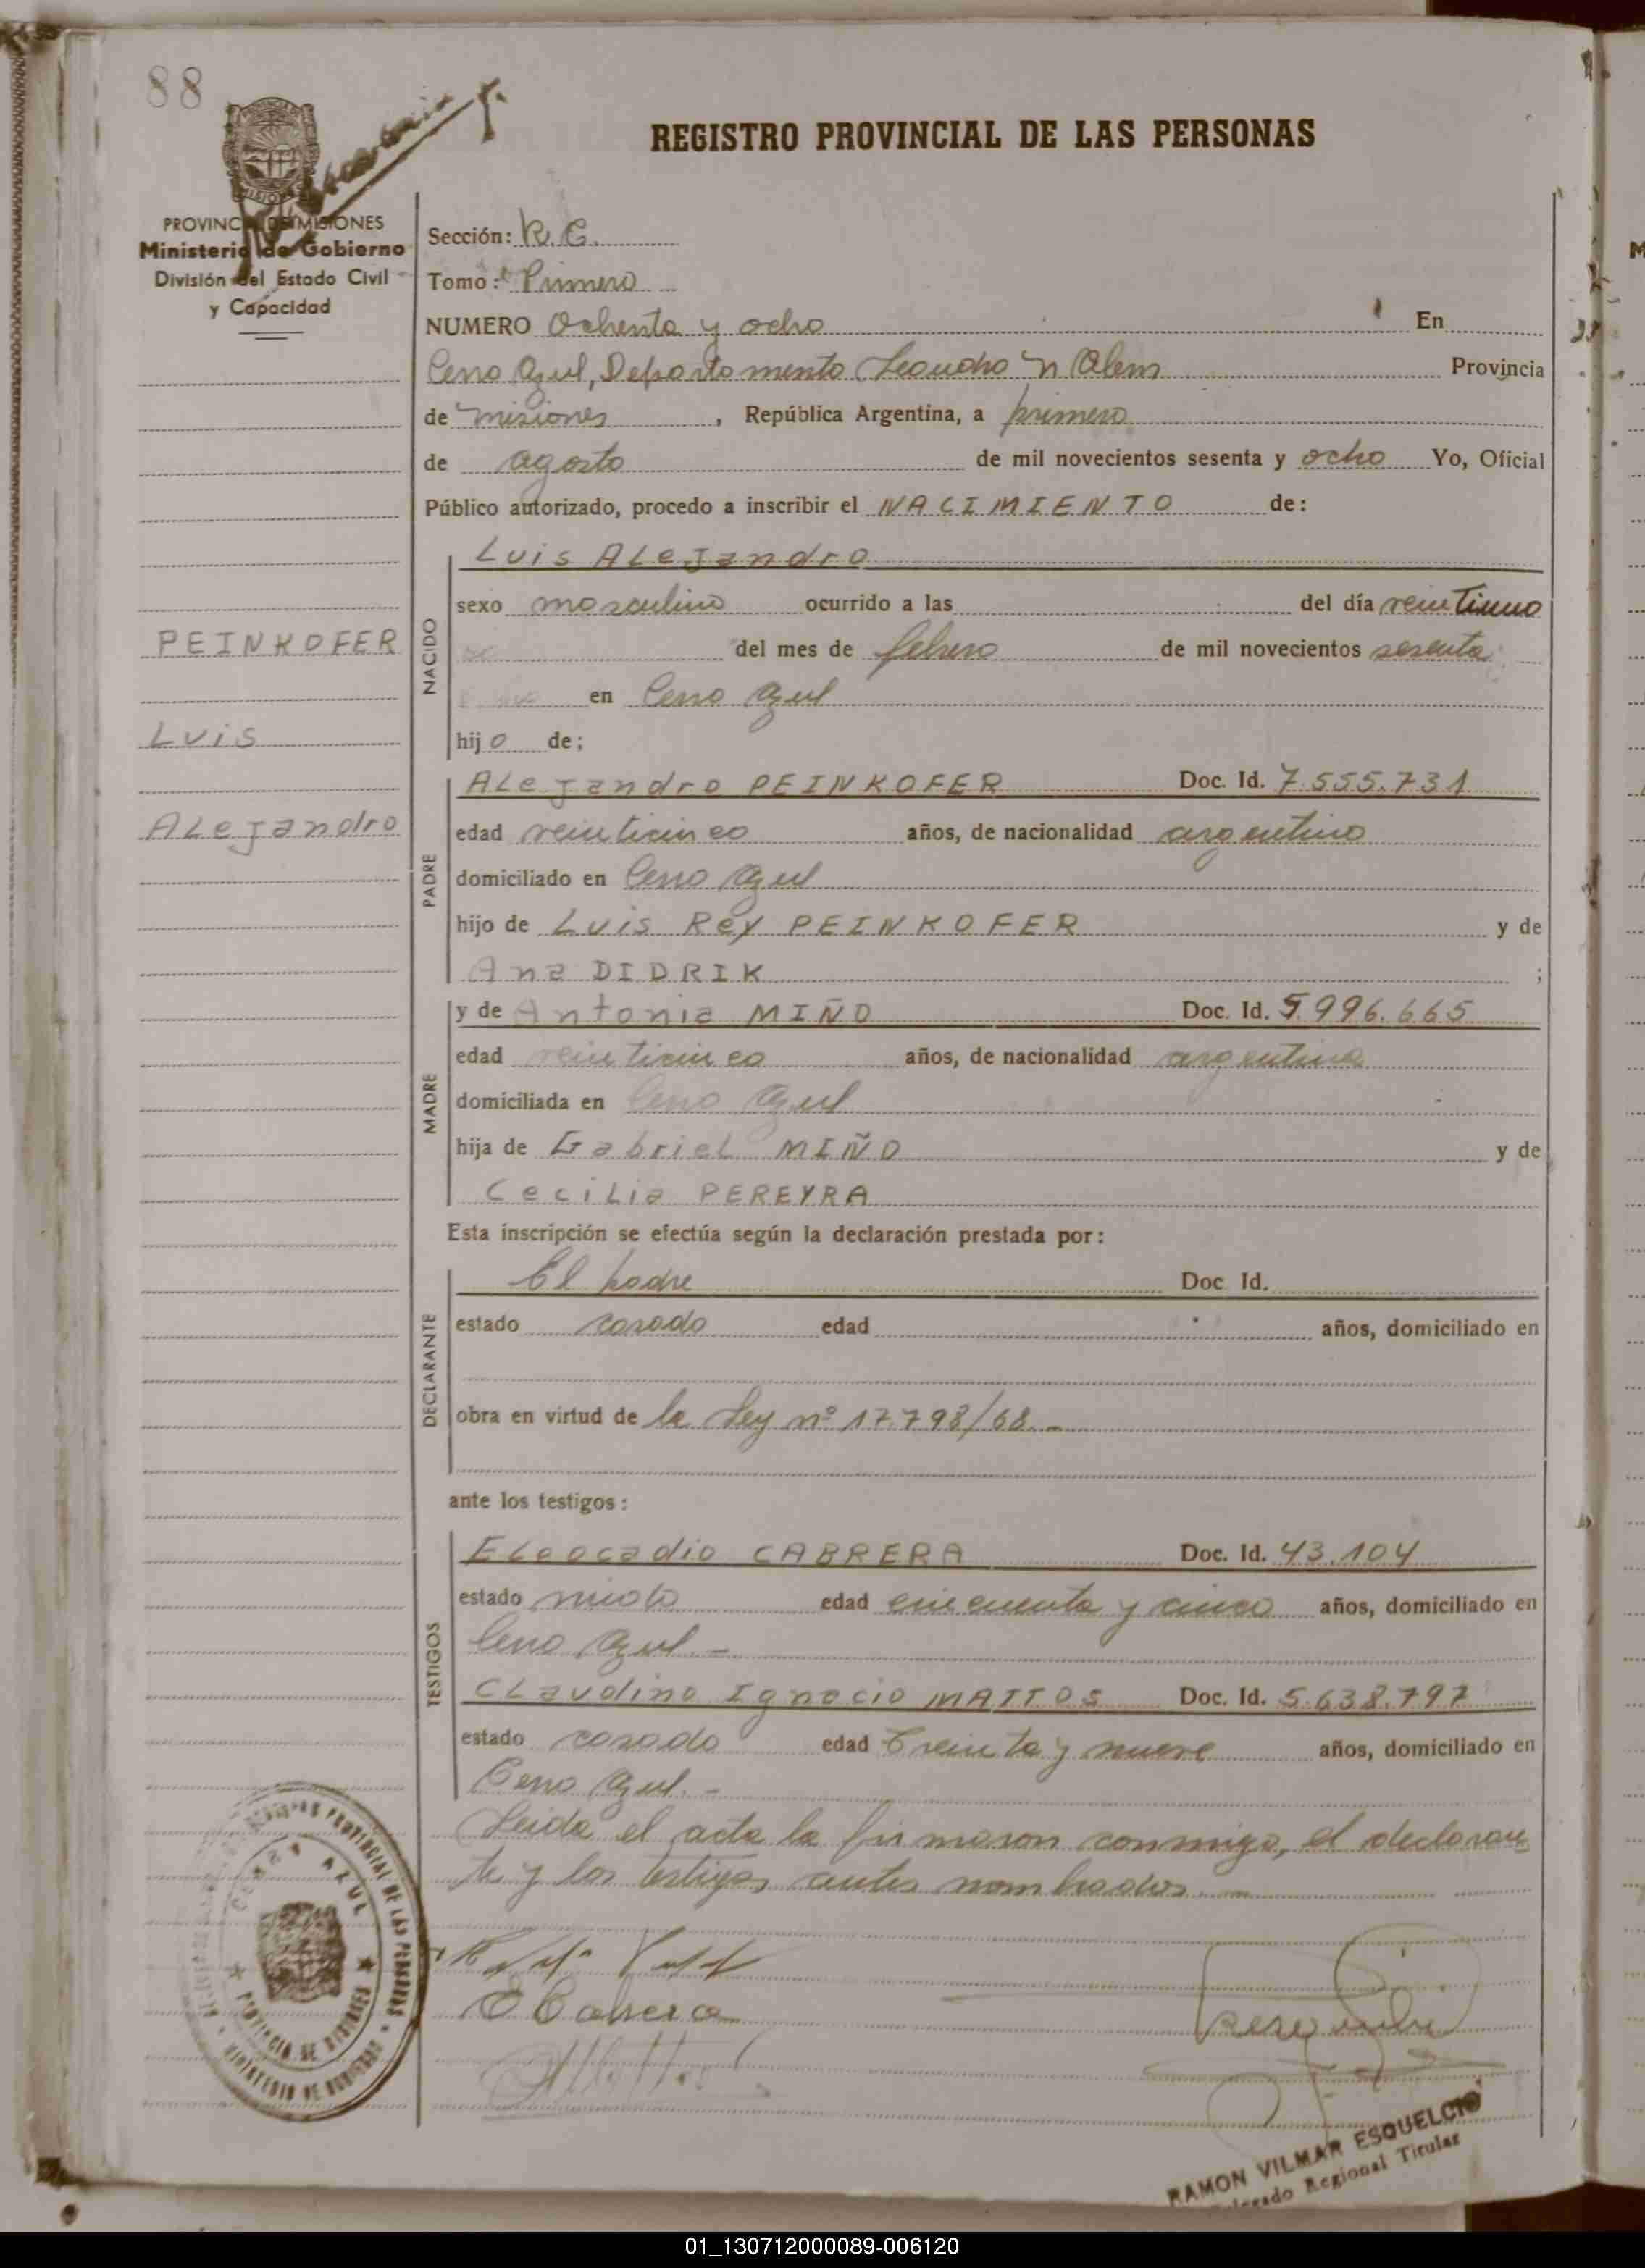 88
REGISTRO PROVINCIAL DE LAS PERSONAS
PROVINCIA DE MISIONES
Ministerio de Gobierno
División del Estado Civil
y Capacidad
Sección: R. C.
Tomo: Primero
NUMERO Ochenta y ocho En
Cerro Azul, Departamento Leandro N Alem Provincia
de misiones, República Argentina, a primero
de agosto de mil novecientos sesenta y ocho Yo, Oficial
Público autorizado, procedo a inscribir el NACIMIENTO de:
NACIDO
Luis Alejandro
sexo masculino ocurrido a las del día veintiuno
del mes de febrero de mil novecientos sesenta
en Cerro Azul
hijo de;
PEINKOFER
Luis
Alejandro
PADRE
Alejandro PEINKOFER Doc. Id. 7.555.731
edad veinticinco años, de nacionalidad argentino
domiciliado en Cerro Azul
hijo de Luis Rey PEINKOFER y de
Ana DIDRIK ;
MADRE
y de Antonia MIÑO Doc. Id. 5.996.665
edad veinticinco años, de nacionalidad argentina
domiciliada en Cerro Azul
hija de Gabriel MIÑO y de
Cecilia PEREYRA
Esta inscripción se efectúa según la declaración prestada por:
DECLARANTE
El padre Doc Id.
estado casado edad años, domiciliado en
obra en virtud de la Ley nº 17.798/68.-
ante los testigos:
TESTIGOS
Eleocadio CABRERA Doc. Id. 43.104
estado edad cincuenta y cinco años, domiciliado en
Cerro Azul.-
Claudino Ignacio MATTOS Doc. Id. 5.638.797
estado casado edad treinta y nueve años, domiciliado en
Cerro Azul.-
Leida el acta la firmaron conmigo, el declaran
te y los testigos antes nombrados.-
E Cabrera
CERRO AZUL
PROVINCIA DE MISIONES
MINISTERIO DE GOBIERNO
PROVINCIAL DE LAS PERSONAS
RAMON VILMAR ESQUELCIO
Delegado Regional Titular
01_130712000089-006120